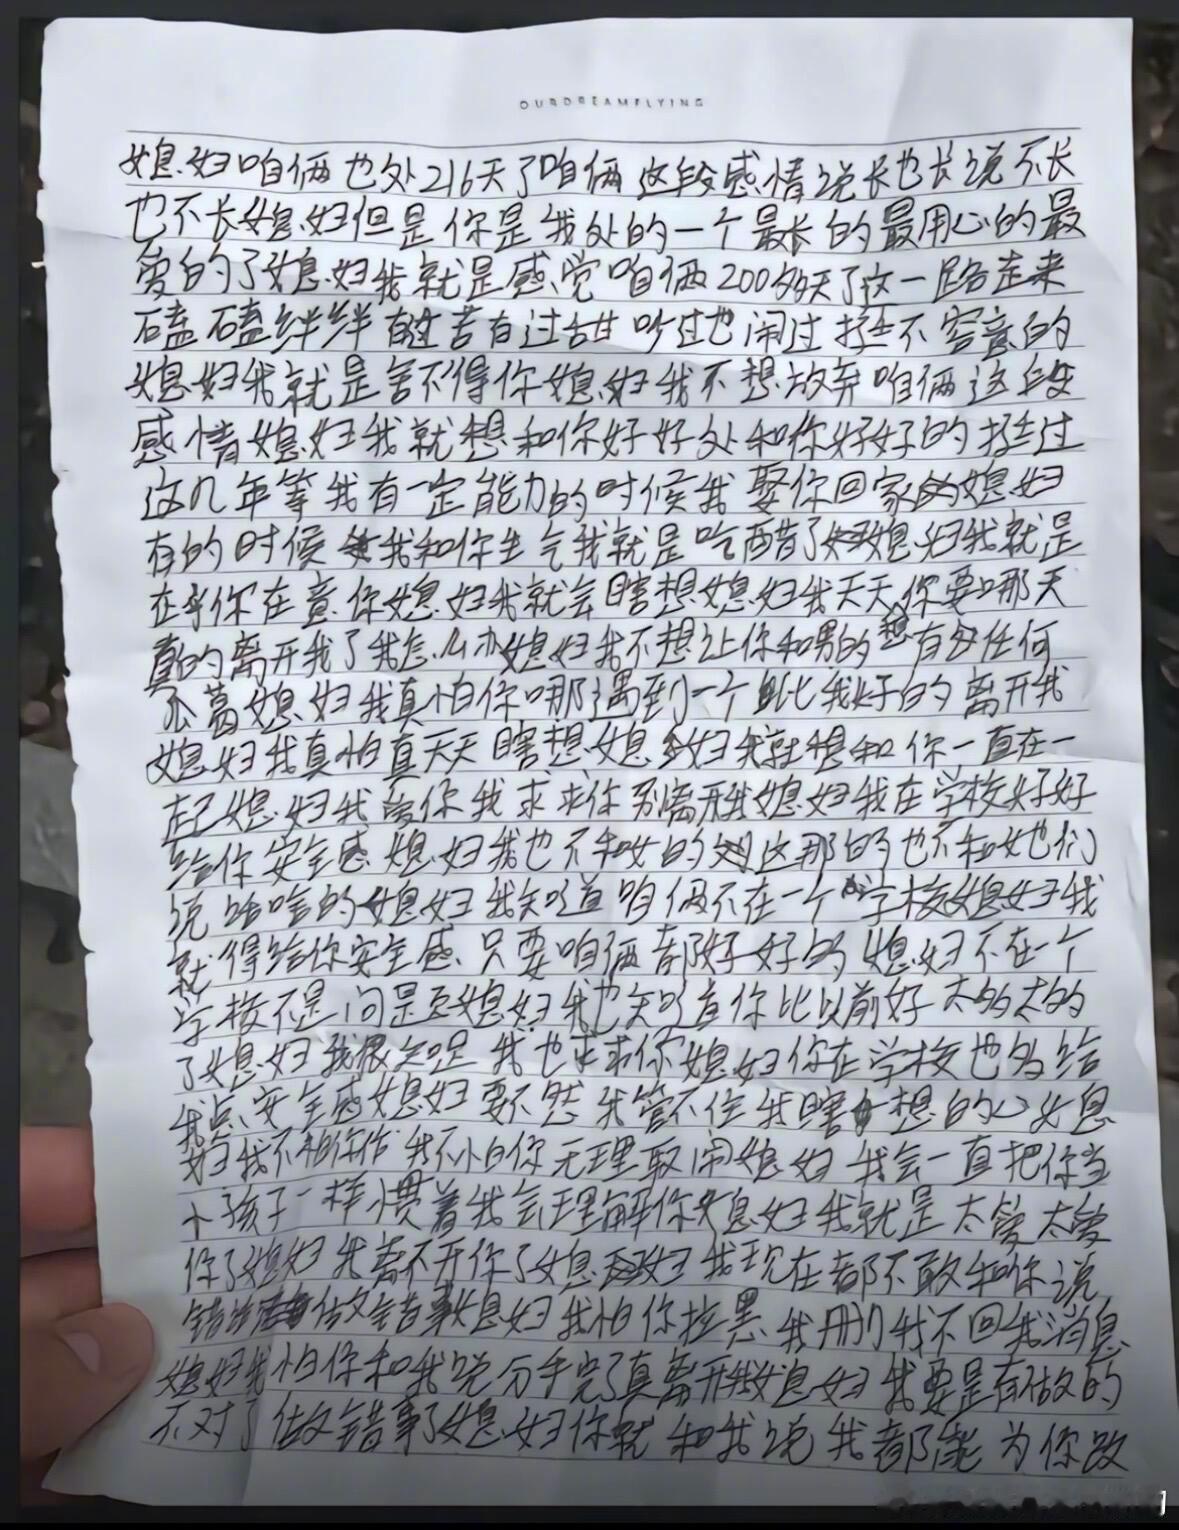 OURDREAMFLYING
媳妇咱俩也处216天了咱俩这段感情说长也长说不长
也不长媳妇但是你是我处的一个最长的最用心的最
爱的了媳妇我就是感觉咱俩200多天了这一路走来
磕磕绊绊有过苦有过甜吵过也闹过挺不容意的
媳妇我就是舍不得你媳妇我不想放弃咱俩这段
感情媳妇我就想和你好好处和你好好的挺过
这几年等我有一定能力的时候我娶你回家媳妇
有的时候我和你生气我就是吃醋了媳妇我就是
在乎你在意你媳妇我就会瞎想媳妇我天天你要哪天
真的离开我了我怎么办媳妇我不想让你和男的有任何
瓜葛媳妇我真怕你哪遇到一个比我好的离开我
媳妇我真怕真天天瞎想媳妇我就想和你一直在一
起媳妇我爱你我求求你别离开我媳妇我在学校好好
给你安全感媳妇我也不和女的这那的也不和她们
说啥啥的媳妇我知道咱俩不在一个学校媳妇我
就得给你安全感只要咱俩都好好的媳妇不在一个
学校不是问是题媳妇我也知道你比以前好太多太多
了媳妇我很知足我也求求你媳妇你在学校也多给
我点安全感媳妇要不然我管不住我瞎想的心媳
妇我不和你作我不怕你无理取闹媳妇我会一直把你当
小孩子一样惯着我会理解你媳妇我就是太爱太爱
你了媳妇我离不开你了媳妇我现在都不敢和你说
做错事媳妇我怕你拉黑我删我不回我消息
媳妇我怕你和我说分手完了真离开我媳妇我要是有做的
不对了做错事了媳妇你就和我说我都能为你改
1